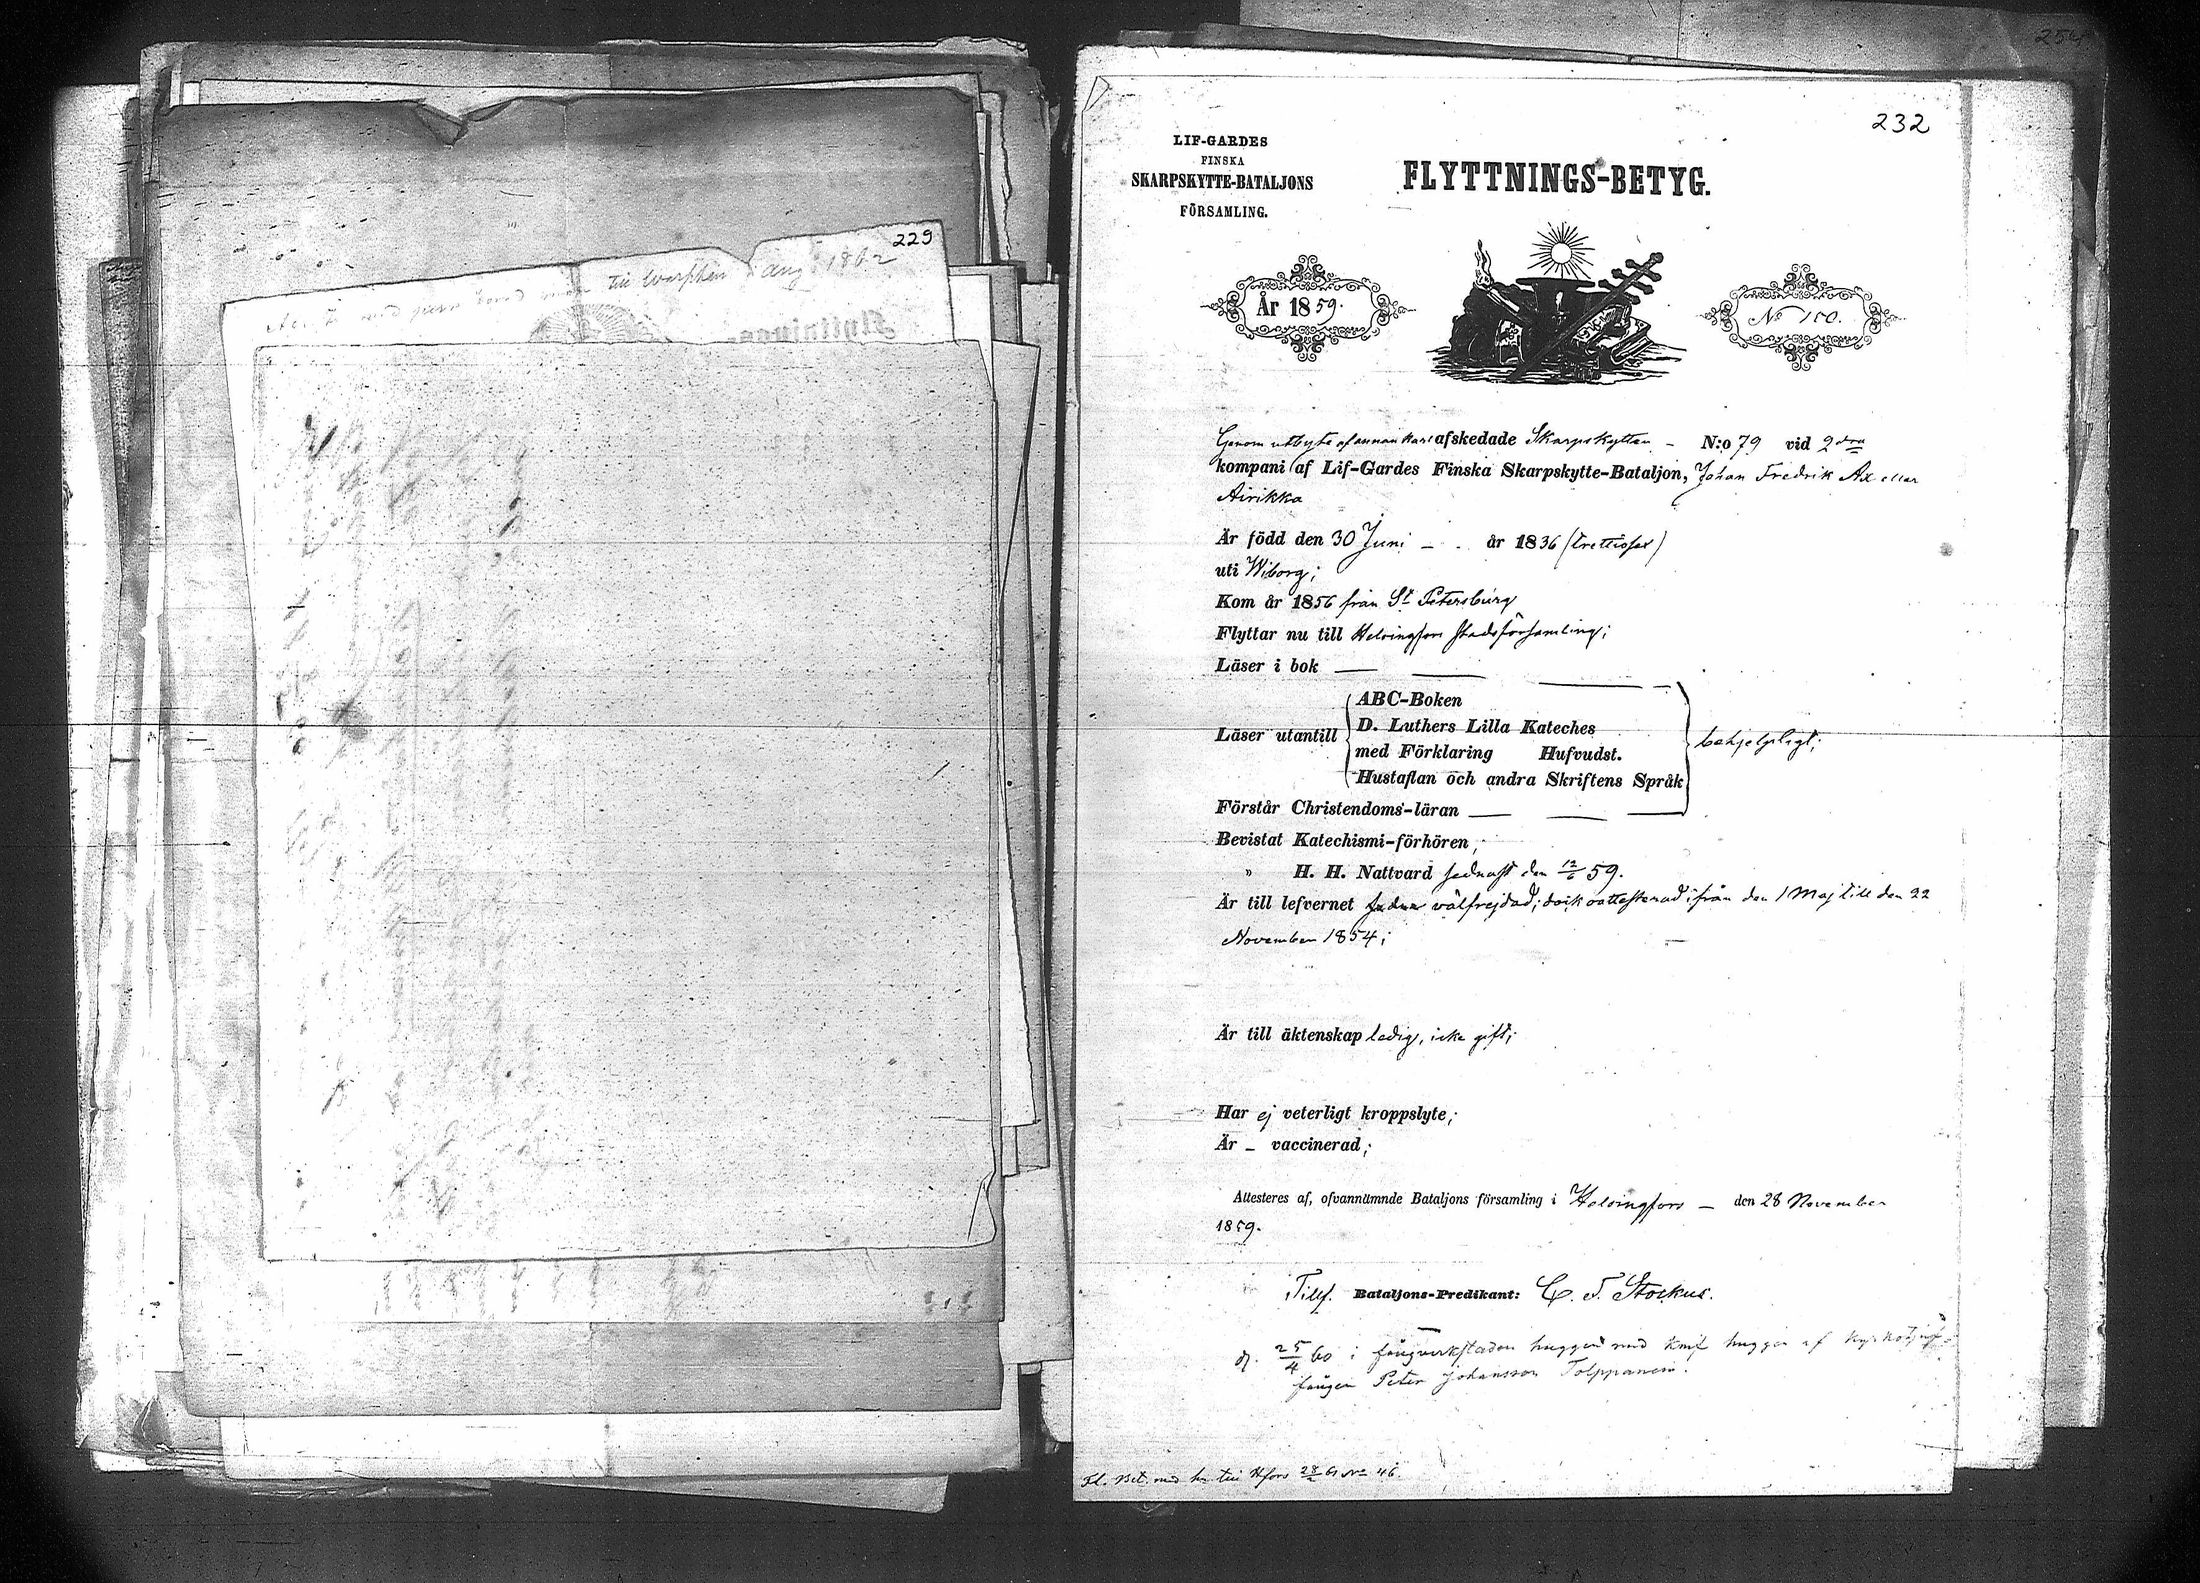 229
till Warkhen d. aug. 1862
Flyttnings
254
232
LIF-GARDES
FINSKA
SKARPSKYTTE-BATALJONS
FÖRSAMLING.
FLYTTNINGS-BETYG.
År 1859.
No 150.
Genom utbyte af annan karl afskedade Skarpskytten - N:o 79 vid 2dra
kompani af Lif-Gardes Finska Skarpskytte-Bataljon, Johan Fredrik Ax eller
Airikka
Är född den 30 Juni - år 1836 (trettiosex)
uti Wiborg;
Kom år 1856 från St Petersburg
Flyttar nu till Helsingfors stadsförsamling;
Läser i bok
Läser utantill
ABC-Boken
D. Luthers Lilla Kateches
med Förklaring Hufvudst.
Hustaflan och andra Skriftens Språk
behjelpligt;
Förstår Christendoms-läran
Bevistat Katechismi-förhören;
" H. H. Nattvard sednast den 12/6 59.
Är till lefvernet wälfrejdad; dock oattesterad ifrån den 1 Maj till den 22
November 1854;
Är till äktenskap ledig, icke gift;
Har ej veterligt kroppslyte;
Är - vaccinerad;
Attesteres af, ofvannämnde Bataljons församling i Helsingfors - den 28 November
1859.
Tillf. Bataljons-Predikant: C. T. Stockus.
d. 25/4 60 i fångverkstaden huggen med knif huggen af
fången Peter Johansson Tolppanen.
Fl. Bet. med till Hfors 28/2 61 No 46.